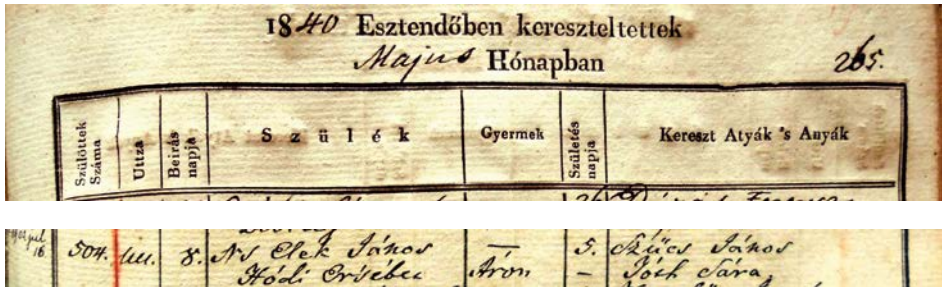 1840 Esztendőben kereszteltettek
Majus Hónapban 265.
Szülöttek Száma
Uttza
Beirás napja
Szülék
Gyermek
Születés napja
Kereszt Atyák 's Anyák
504. 8. Ns Elek János — 5. Szűcs János
Hódi Ersébet Áron – Tóth Sára